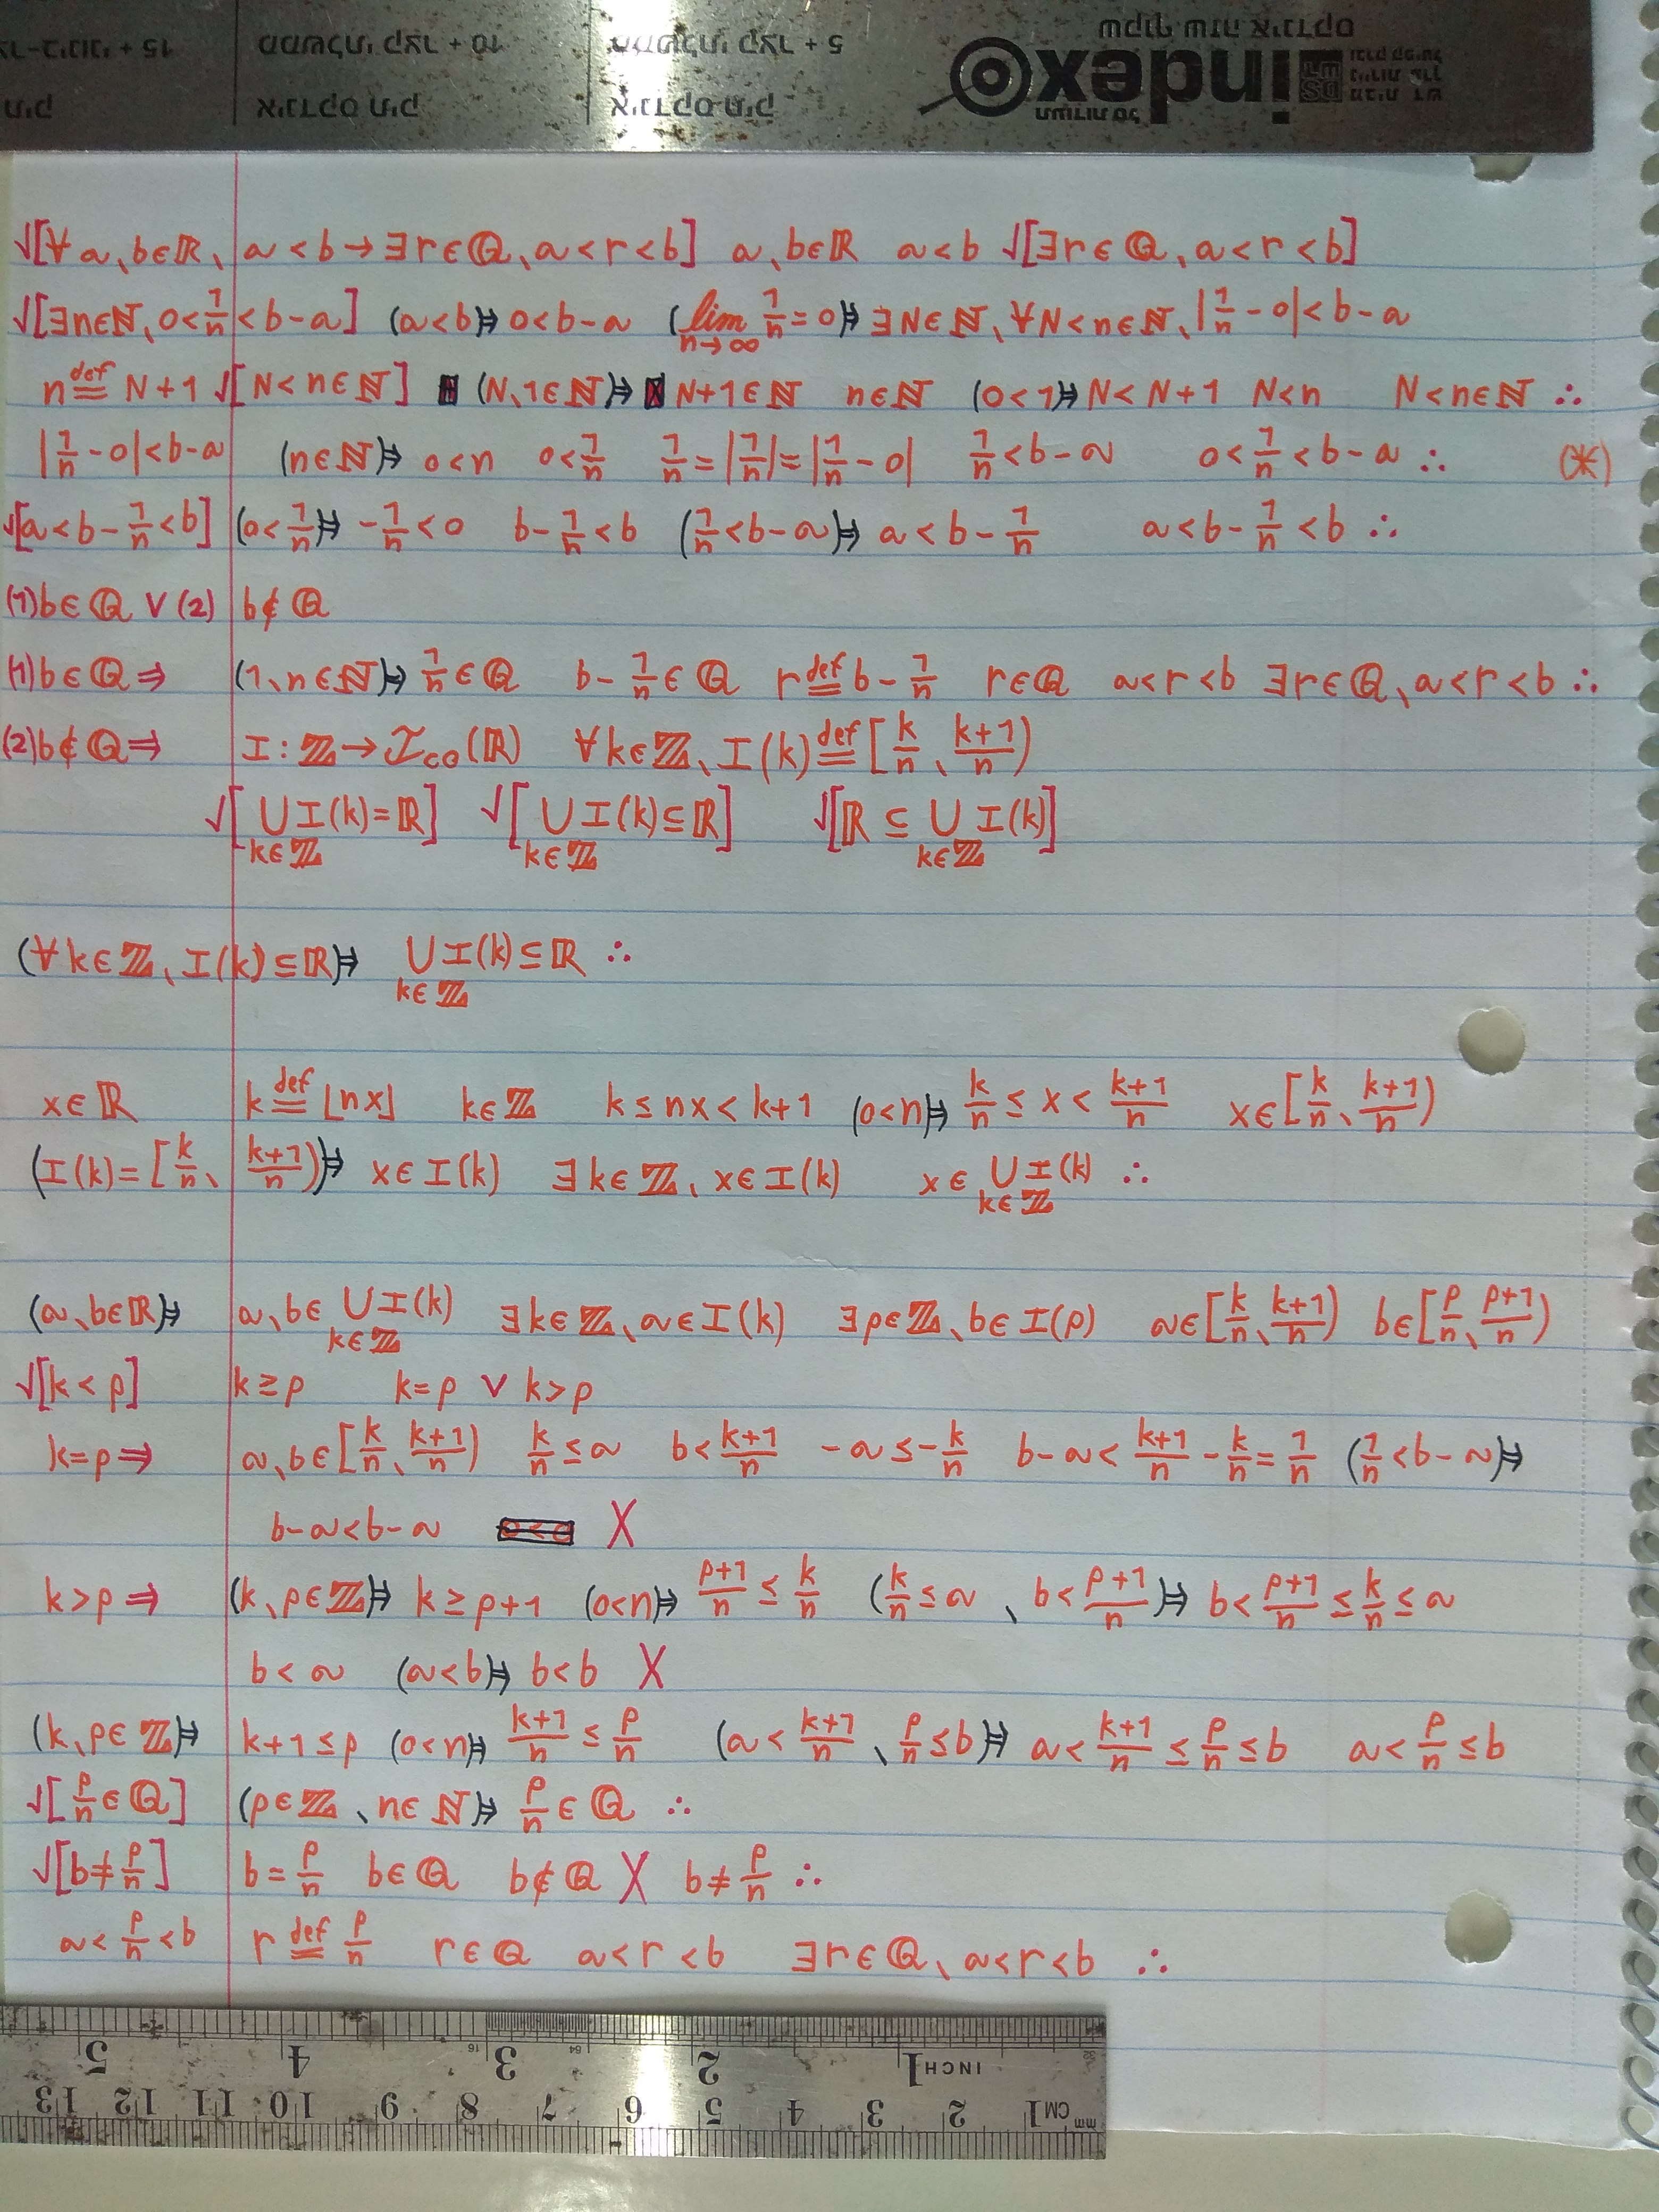 אינדקס תיק
אינדקס תיק
index
√[∀a、b∈ℝ、 a<b→∃r∈ℚ、a<r<b] a、b∈ℝ a<b √[∃r∈ℚ、a<r<b]
√[∃n∈ℕ、0<1/n<b-a] (a<b)⤇ 0<b-a (lim n→∞ 1/n=0)⤇ ∃N∈ℕ、∀N<n∈ℕ、|1/n-0|<b-a
n def= N+1 √[N<n∈ℕ] (N、1∈ℕ)⤇ N+1∈ℕ n∈ℕ (0<1)⤇ N<N+1 N<n N<n∈ℕ ∴
|1/n-0|<b-a (n∈ℕ)⤇ 0<n 0<1/n 1/n=|1/n|=|1/n-0| 1/n<b-a 0<1/n<b-a ∴ (*)
√[a<b-1/n<b] (0<1/n)⤇ -1/n<0 b-1/n<b (1/n<b-a)⤇ a<b-1/n a<b-1/n<b ∴
(1)b∈ℚ ∨ (2) b∉ℚ
(1)b∈ℚ⇒ (1、n∈ℕ)⤇ 1/n∈ℚ b-1/n∈ℚ r def= b-1/n r∈ℚ a<r<b ∃r∈ℚ、a<r<b ∴
(2)b∉ℚ⇒ I:ℤ→ℐco(ℝ) ∀k∈ℤ、I(k) def= [k/n、(k+1)/n)
√[∪ k∈ℤ I(k)=ℝ] √[∪ k∈ℤ I(k)⊆ℝ] √[ℝ⊆∪ k∈ℤ I(k)]
(∀k∈ℤ、I(k)⊆ℝ)⤇ ∪ k∈ℤ I(k)⊆ℝ ∴
x∈ℝ k def= ⌊nx⌋ k∈ℤ k≤nx<k+1 (0<n)⤇ k/n≤x<(k+1)/n x∈[k/n、(k+1)/n)
(I(k)=[k/n、(k+1)/n))⤇ x∈I(k) ∃k∈ℤ、x∈I(k) x∈∪ k∈ℤ I(k) ∴
(a、b∈ℝ)⤇ a、b∈∪ k∈ℤ I(k) ∃k∈ℤ、a∈I(k) ∃p∈ℤ、b∈I(p) a∈[k/n、(k+1)/n) b∈[p/n、(p+1)/n)
√[k<p] k≥p k=p ∨ k>p
k=p⇒ a、b∈[k/n、(k+1)/n) k/n≤a b<(k+1)/n -a≤-k/n b-a<(k+1)/n-k/n=1/n (1/n<b-a)⤇
b-a<b-a X
k>p⇒ (k、p∈ℤ)⤇ k≥p+1 (0<n)⤇ (p+1)/n≤k/n (k/n≤a 、b<(p+1)/n)⤇ b<(p+1)/n≤k/n≤a
b<a (a<b)⤇ b<b X
(k、p∈ℤ)⤇ k+1≤p (0<n)⤇ (k+1)/n≤p/n (a<(k+1)/n 、p/n≤b)⤇ a<(k+1)/n≤p/n≤b a<p/n≤b
√[p/n∈ℚ] (p∈ℤ、n∈ℕ)⤇ p/n∈ℚ ∴
√[b≠p/n] b=p/n b∈ℚ b∉ℚ X b≠p/n ∴
a<p/n<b r def= p/n r∈ℚ a<r<b ∃r∈ℚ、a<r<b ∴
5 4 3 2 1 INCH
13 12 11 10 9 8 7 6 5 4 3 2 1 CM mm